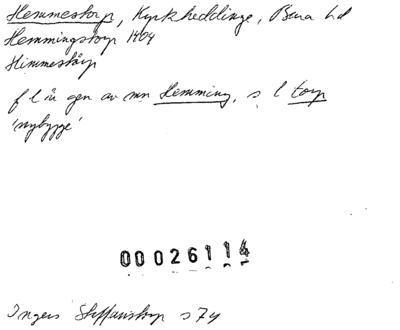 Hemmestorp, Kyrkheddinge, Bara hd
Hemmingstorp 1404
Himmestårp
f l är gen av mn Hemming, s l torp
'nybygge'
00026114
Ingers Staffanstorp s 74